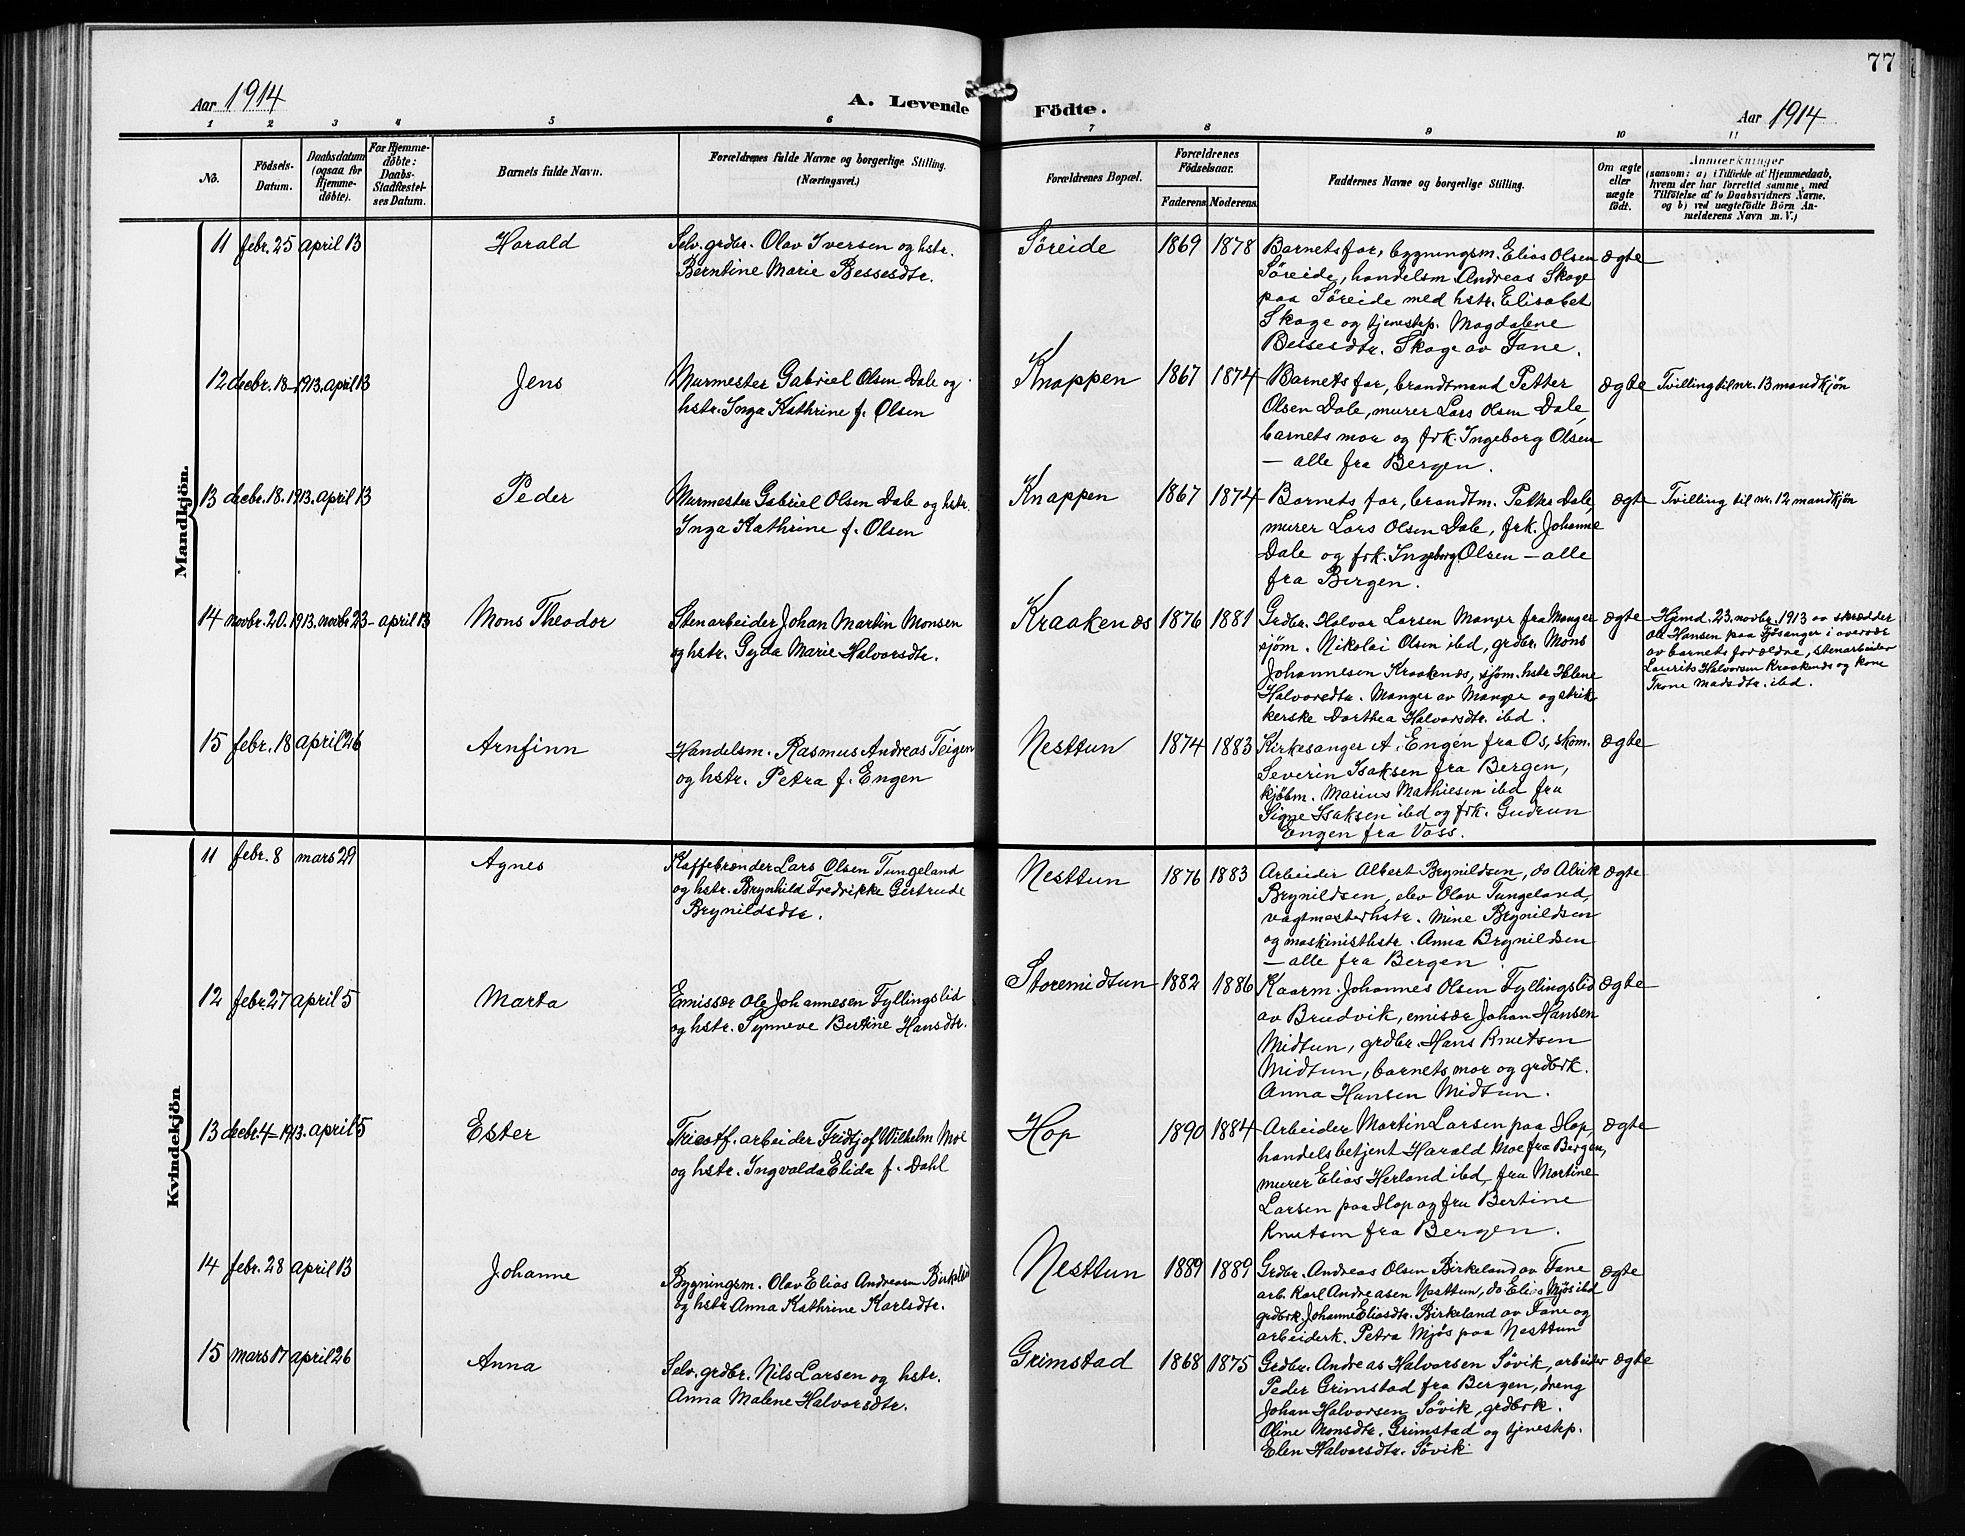 77
Aar 1914
A. Levende
Födte.
Aar 1914
1 2 3 4 5 6 7 8 9 10 11
No.
Födsels-
Datum.
Daabsdatum
(ogsaa for
Hjemme-
döbte).
For Hjemme-
døbte:
Daabs-
Stadfæstel-
ses Datum.
Barnets fulde Navn.
Forældrenes fulde Navne og borgerlige Stilling.
(Næringsvei.)
Forældrenes Bopæl.
Forældrenes
Födselsaar.
Faderens Moderens
Faddernes Navne og borgerlige Stilling.
Om ægte
eller
uægte
födt.
Anmærkninger
(saasom: a) i Tilfælde af Hjemmedaab,
hvem der har forrettet samme, med
Tilföielse af to Daabsvidners Navne,
og b) ved uægtefödte Börn An-
melderens Navn m. V.)
Mandkjön.
11 febr. 25 april 13
Harald
Selv. grdbr. Olav Iversen og hstr.
Berntine Marie Bessesdtr.
Søreide
1869 1878
Barnets far, bygningsm. Elias Olsen
Søreide, handelsm. Andreas Skage
paa Søreide med hstr. Elisabet
Skage og tjenestep. Magdalene
Bessesdtr. Skage av Fane.
ægte
12 decbr. 18-1913. april 13
Jens
Murmester Gabriel Olsen Dale og
hstr. Inga Kathrine f. Olsen
Knappen
1867 1874
Barnets far, brandtmand Petter
Olsen Dale, murer Lars Olsen Dale,
barnets mor og frk. Ingeborg Olsen
— alle fra Bergen.
ægte
Tvilling til nr. 13 mandkjøn
13 decbr. 18. 1913. april 13
Peder
Murmester Gabriel Olsen Dale og hstr.
Inga Kathrine f. Olsen
Knappen
1867 1874
Barnets far, brandtm. Petter Dale,
murer Lars Olsen Dale, frk. Johanne
Dale og frk. Ingeborg Olsen — alle
fra Bergen.
ægte
Tvilling til nr. 12 mandkjøn
14 novbr. 20. 1913. novbr 23 - april 13
Mons Theodor
Stenarbeider Johan Martin Monsen
og hstr. Gyda Marie Halvorsdtr.
Kraakenæs
1876 1881
Grdbr. Halvor Larsen Manger fra Manger
sjøm. Nikolai Olsen ibd, grdbr. Mons
Johannesen Kraakenæs, sjøm. hstr. Helene
Halvorsdtr. Manger av Manger og strik
kerske Dorthea Halvorsdtr. ibd.
ægte
Hjemd. 23. novbr. 1913 av skrædder
Ole Hansen paa Fjøsanger i overvær
av barnets forældre, stenarbeider
Laurits Halvorsen Kraakenæs og kone
Trone Madsdtr. ibd.
15 febr. 18 april 26
Arnfinn
Handelsm. Rasmus Andreas Teigen
og hstr. Petra f. Engen
Nesttun
1874 1883
Kirkesanger A. Engen fra Os, skom.
Severin Isaksen fra Bergen,
kjøbm. Marius Mathiesen ibd fru
Signe Isaksen ibd og frk. Gudrun
Engen fra Voss.
ægte
Kvindekjön
11 febr. 8 mars 29
Agnes
Kaffebrender Lars Olsen Tungeland
og hstr. Brynhild Fredrikke Gertrude
Brynildsdtr.
Nesttun
1876 1883
Arbeider Albert Brynildsen, do Alrik
Brynildsen, elev Olav Tungeland,
vagtmesterhstr. Mine Brynildsen
og maskinisthstr. Anna Brynildsen
— alle fra Bergen
ægte
12 febr. 27 april 5
Marta
Emissær Ole Johannesen Fyllingslid
og hstr. Synneve Bertine Hansdtr.
Storemidtun
1882 1886
Kaarm. Johannes Olsen Fyllingslid
av Bruvik, emisær Johan Hansen
Midtun, grdbr. Hans Knutsen
Midtun, barnets mor og grdbrk.
Anna Hansen Midtun.
ægte
13 decbr. 4-1913. april 5
Ester
Tricotf. arbeider Fridtjof Wilhelm Moe
og hstr. Ingvalda Elida f. Dahl
Hop
1890 1884
Arbeider Martin Larsen paa Hop,
handelsbetjent Harald Moe fra Bergen,
murer Elias Herland ibd, fru Martine
Larsen paa Hop og fru Bertine
Knutsen fra Bergen.
ægte
14 febr. 28 april 13
Johanne
Bygningsm. Olav Elias Andreasen Birkeland
og hstr Anna Kathrine Karlsdtr.
Nesttun
1889 1889
Grdbr. Andreas Olsen Birkeland av Fane
arb. Karl Andreasen Nesttun, do Elias Mjøs ibd
grdbrk. Johanne Eliasdtr. Birkeland av Fane og
arbeiderk. Petra Mjøs paa Nesttun
ægte
15 mars 17 april 26
Anna
Selv. grdbr. Nils Larsen og hstr.
Anna Malene Halvorsdtr.
Grimstad
1868 1875
Grdbr. Andreas Halvorsen Søvik, arbeider
Peder Grimstad fra Bergen, dreng
Johan Halvorsen Søvik, grdbrk.
Oline Monsdtr. Grimstad og tjenestep.
Elen Halvorsdtr. Søvik
ægte